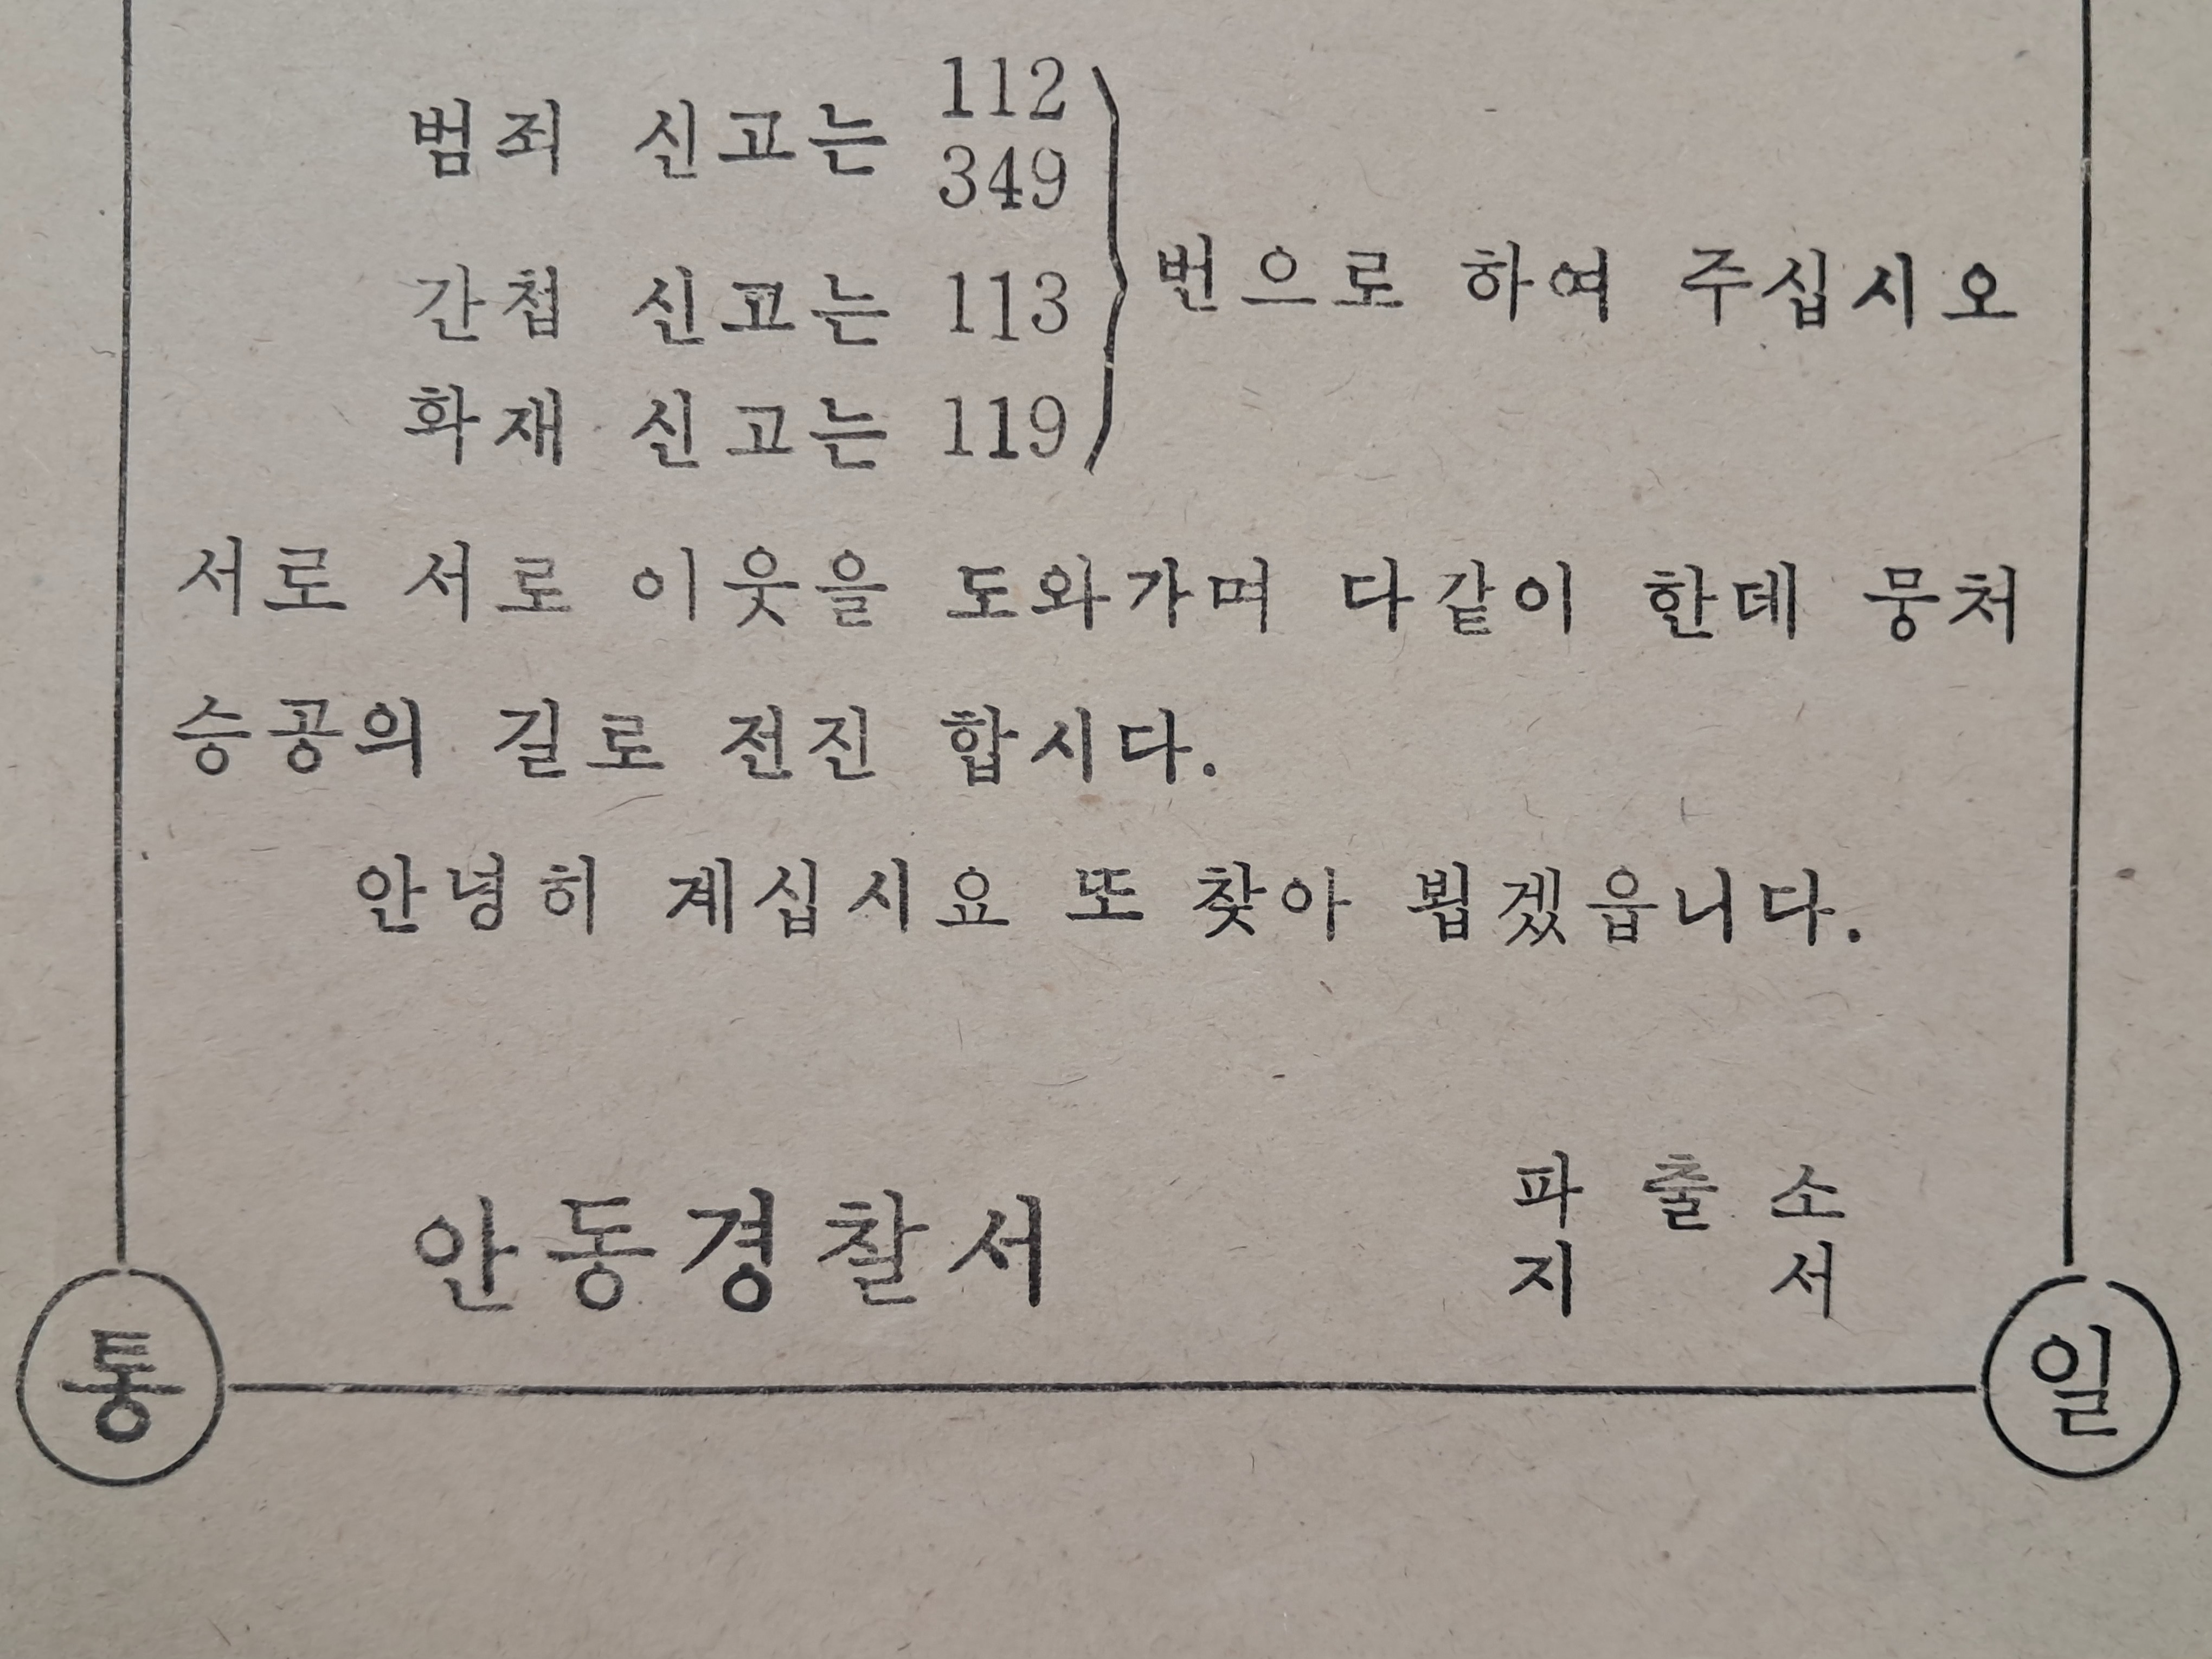 범죄 신고는 112
349
간첩 신고는 113 번으로 하여 주십시오
화재 신고는 119
서로 서로 이웃을 도와가며 다같이 한데 뭉처
승공의 길로 전진 합시다.
안녕히 계십시요 또 찾아 뵙겠읍니다.
안동경찰서 파출소
지서
통 일